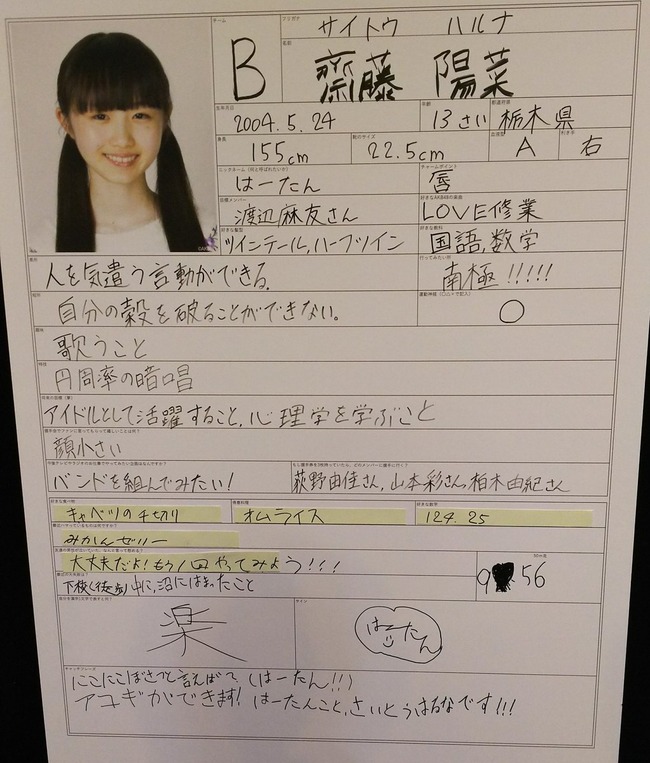 チーム
フリガナ
サイトウ ハルナ
B
名前
齋藤 陽菜
生年月日
2004. 5. 24
年齢
13さい
都道府県
栃木県
身長
155cm
靴のサイズ
22.5cm
血液型
A
利き手
右
ニックネーム (何と呼ばれたいか?)
はーたん
チャームポイント
唇
目標メンバー
渡辺麻友さん
好きなAKB48の楽曲
LOVE修業
好きな髪型
ツインテール,ハーフツイン
好きな教科
国語,数学
長所
人を気遣う言動ができる。
行ってみたい所
南極!!!!!
短所
自分の殻を破ることができない。
運動神経 (○△×で記入)
○
趣味
歌うこと
特技
円周率の暗唱
将来の目標 (夢)
アイドルとして活躍すること,心理学を学ぶこと
顔小さい
バンドを組んでみたい!
荻野由佳さん,山本彩さん,柏木由紀さん
好きな食べ物
キャベツの千切り
オムライス
好きな数字
124. 25
みかんゼリー
大丈夫だよ!もう1回やってみよう!!!
下校(徒歩)中に,沼にはまったこと
50m走
9 56
楽
サイン
はーたん
キャッチフレーズ
にこにこぼさつと言えばて (はーたん!!)
アコギができます! はーたんこと,さいとうはるなです!!!